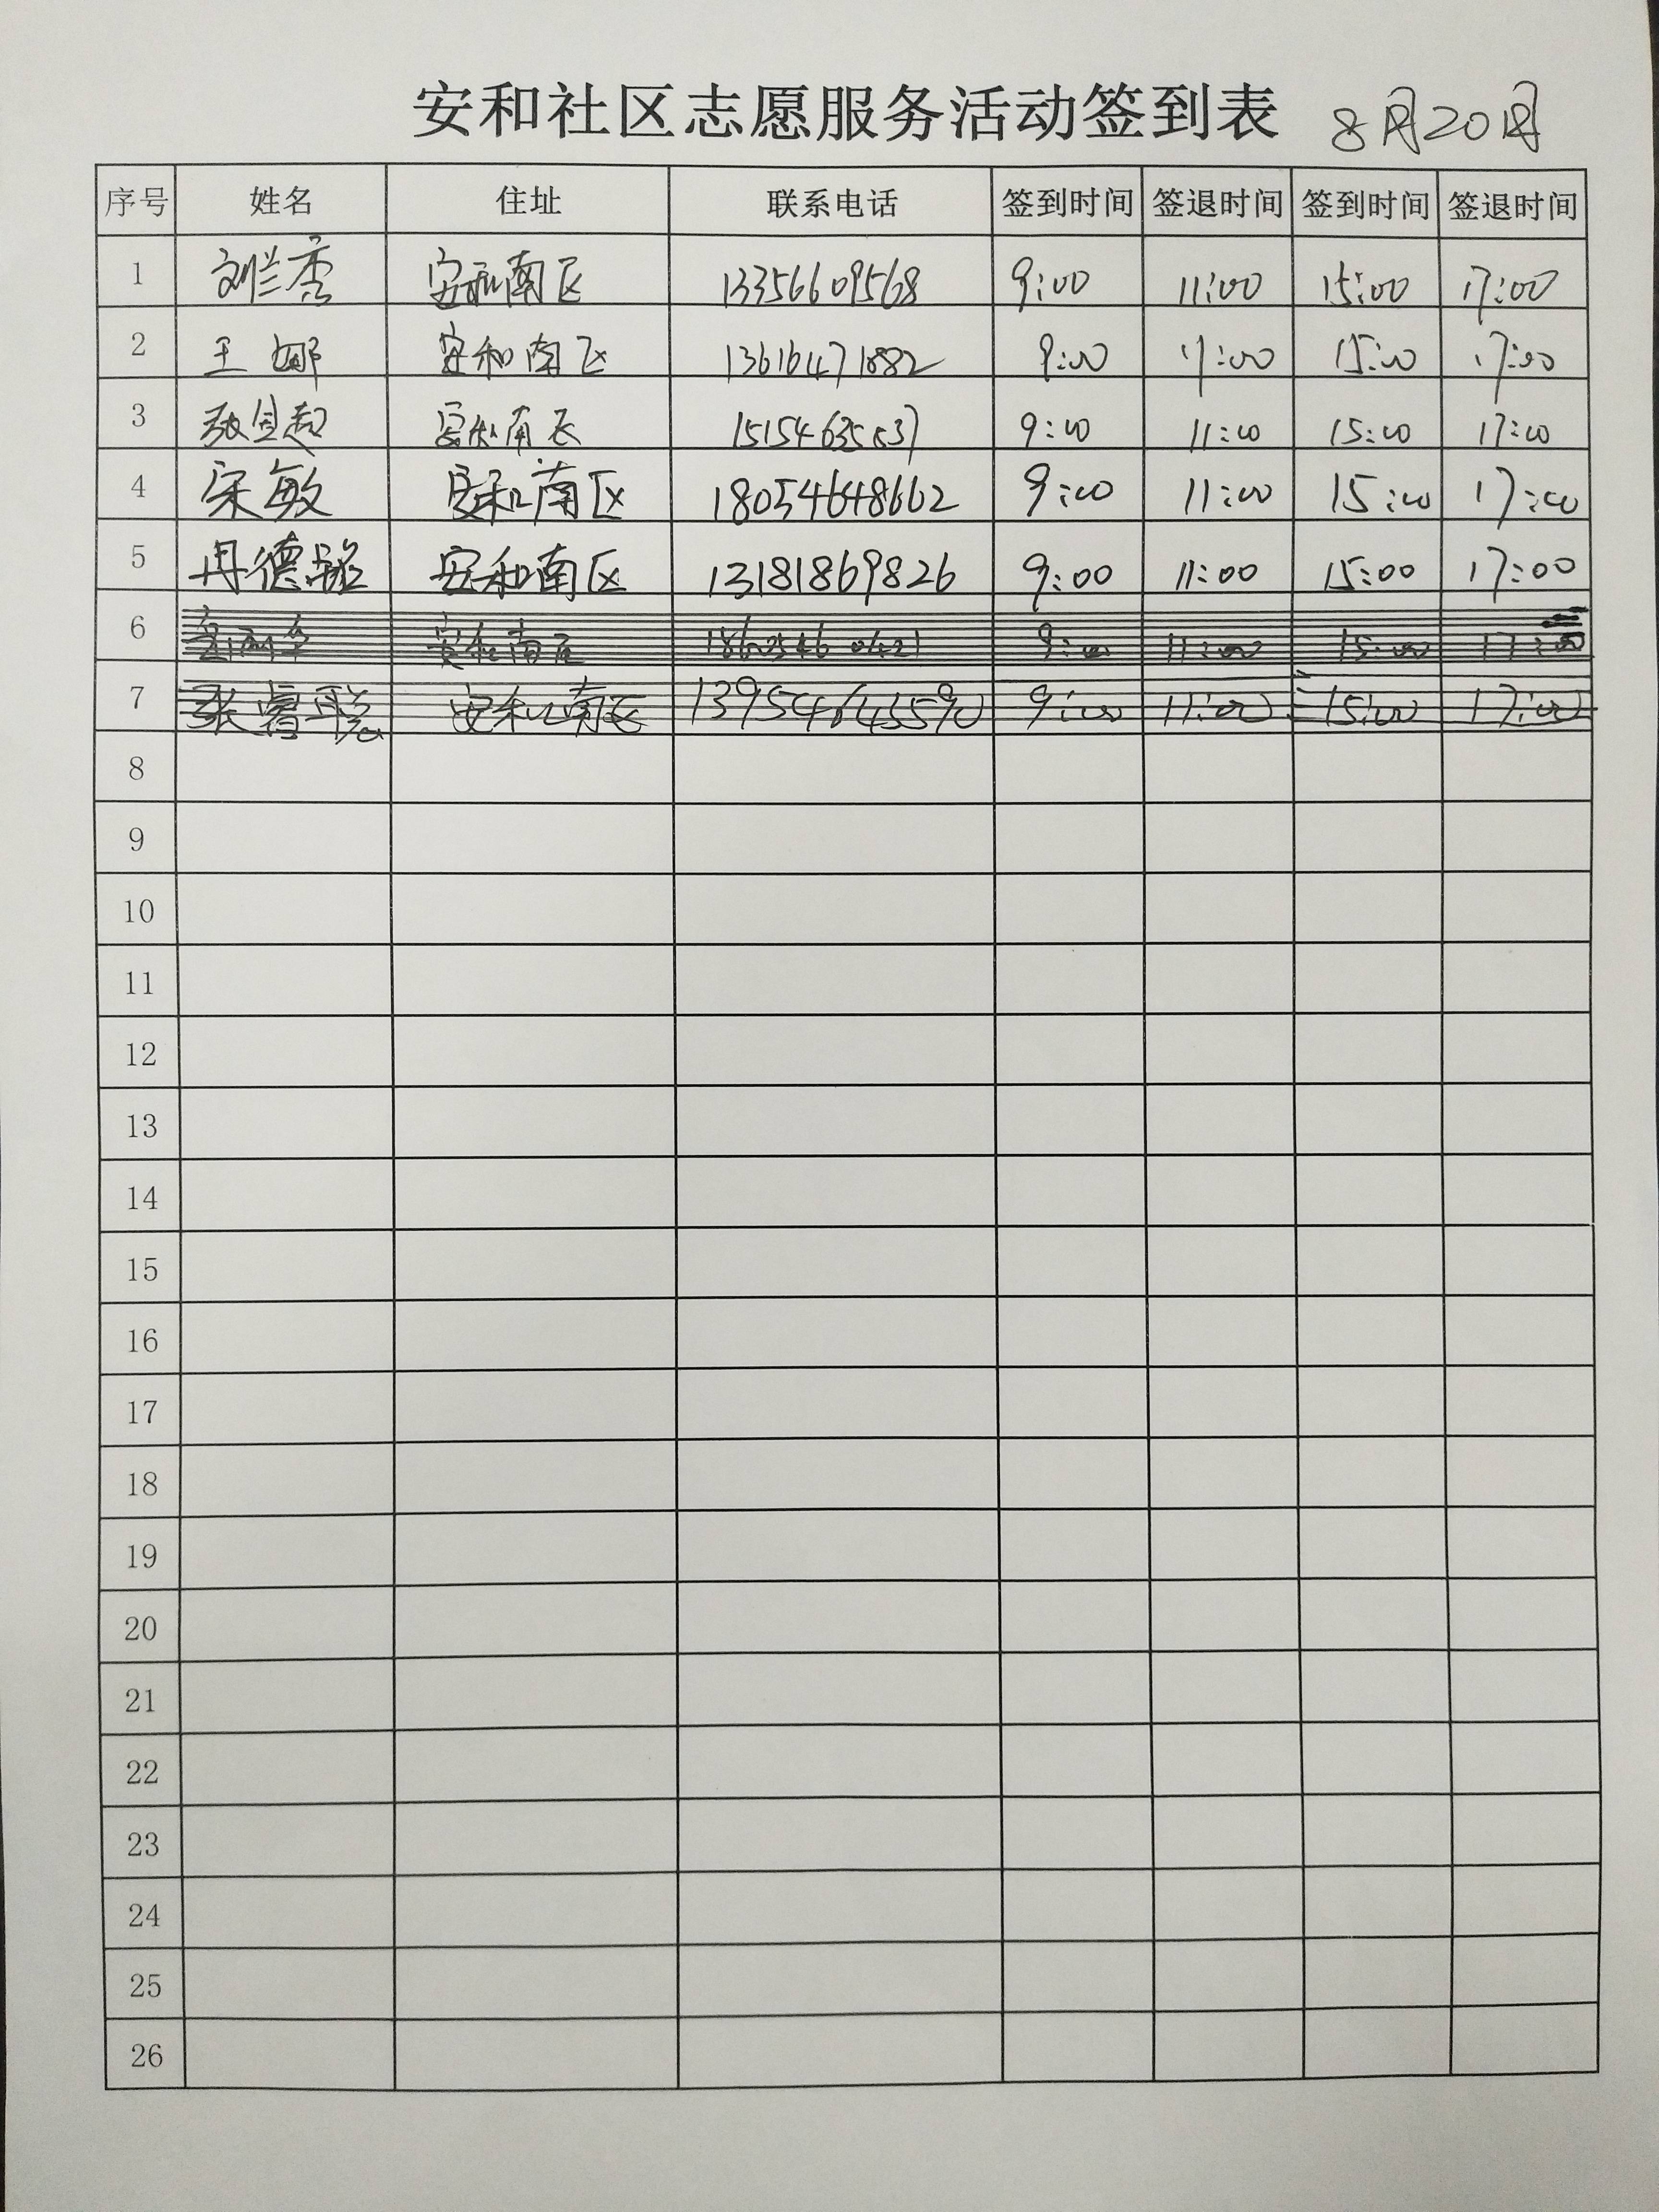 安和社区志愿服务活动签到表 8月20日
序号 姓名 住址 联系电话 签到时间 签退时间 签到时间 签退时间
1 刘兰香 安和南区 13356609568 9:00 11:00 15:00 17:00
2 王娜 安和南区 13616471882 9:00 11:00 15:00 17:00
3 安和南区 9:00 11:00 15:00 17:00
4 宋敏 安和南区 18054648662 9:00 11:00 15:00 17:00
5 安和南区 13181869826 9:00 11:00 15:00 17:00
6 安和南区 9:00 11:00 15:00 17:00
7 安和南区 9:00 11:00 15:00 17:00
8
9
10
11
12
13
14
15
16
17
18
19
20
21
22
23
24
25
26